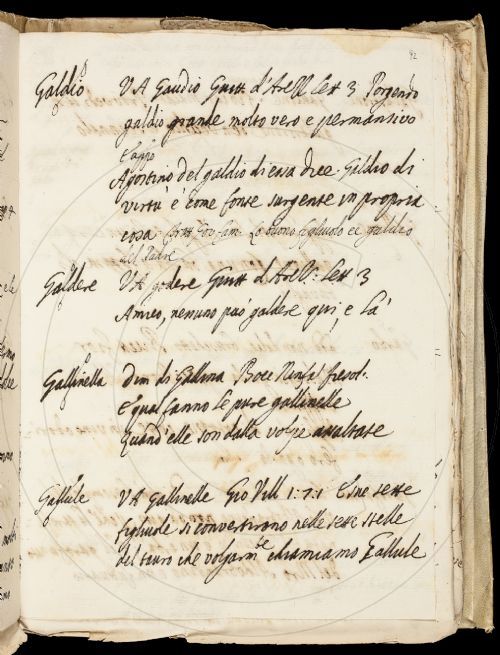 92
Galdio VA Gaudio Guitt. d'Arezz. Lett 3 Porgendo
galdio grande molto vero e permansivo
E appo
Agostino del galdio di essa dice. Galdio di
virtù è come fonte surgente in propria
cosa Lo buono figliuolo ee galdio
del Padre
Galdere VA godere Guitt d'Arezz: Lett 3
Amico, nenuno può galdere qui, e là
Gallinella dim di Gallina Bocc Ninf. fiesol:
E qual fanno le pure gallinelle
Quand'elle son dalla volpe assaltate
Gallule VA gallinelle Gio Vill 1:7:1 E sue sette
figliuole si convertirono nelle sette stelle
del tauro che volgarmte chiamiamo Gallule